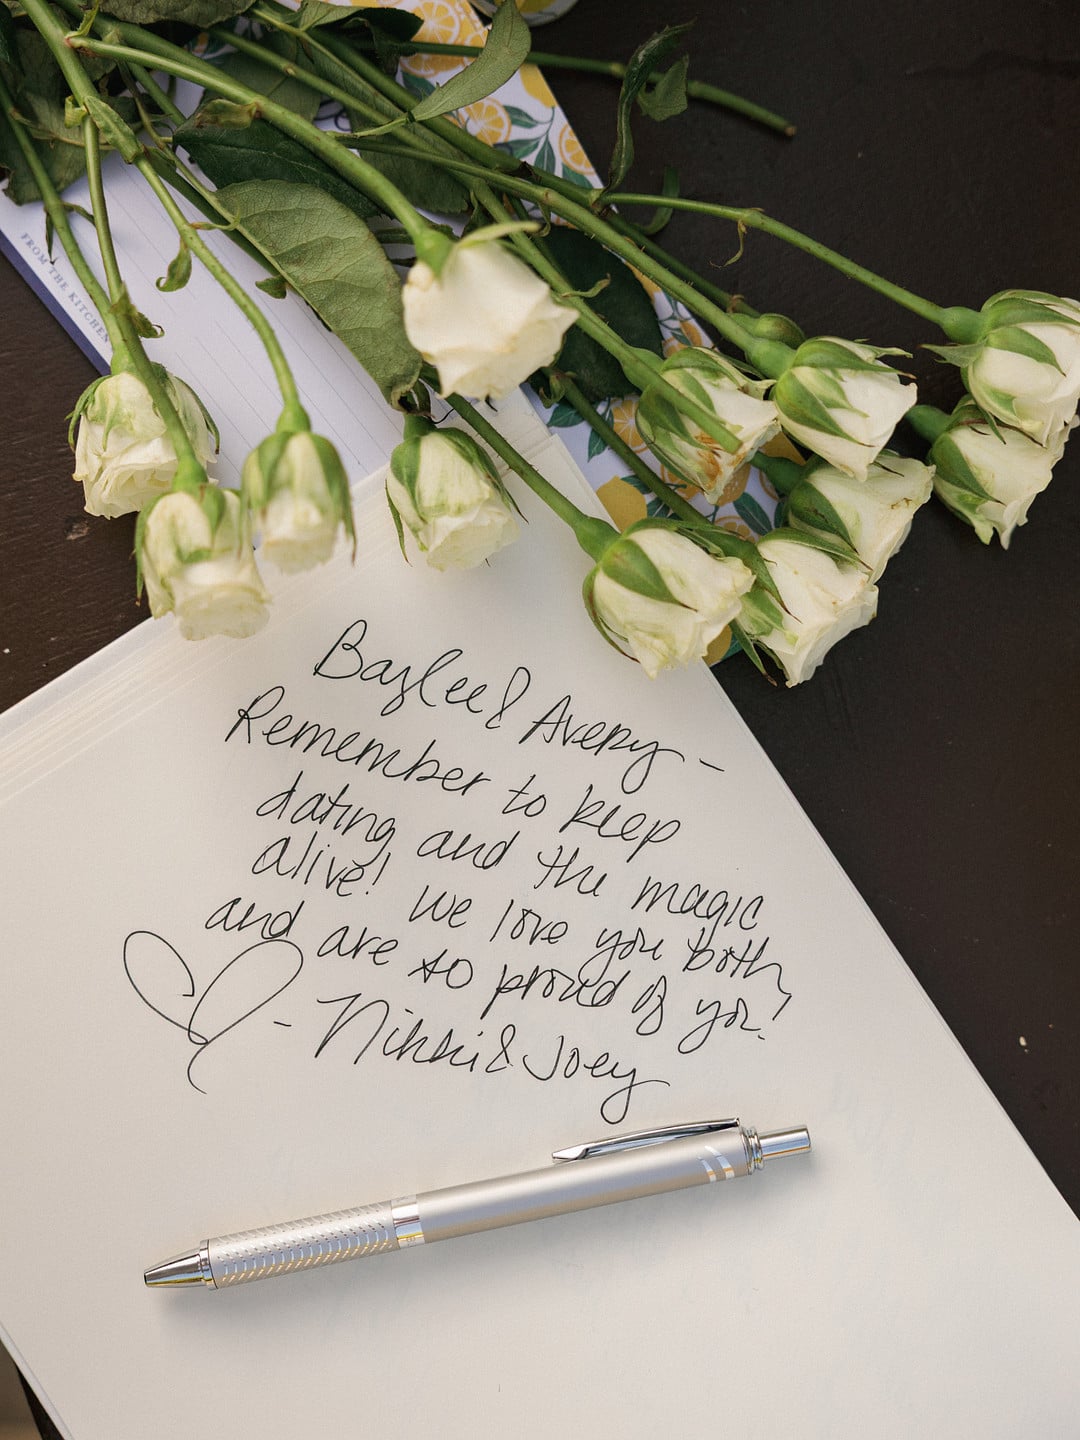 FROM THE KITCHEN
Baylee & Avery -
Remember to keep
dating and the magic
alive! We love you both,
and are so proud of you!
- Nikki & Joey